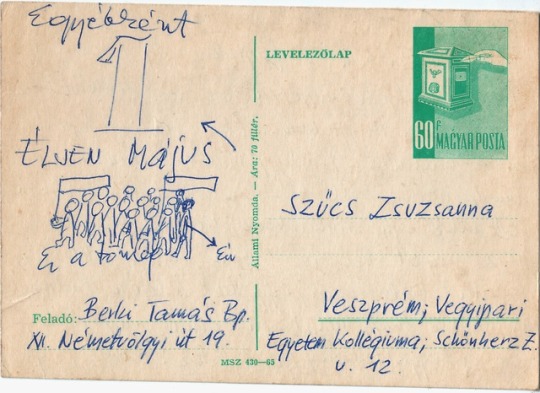 Egyébként
1
ÉLJEN MÁJUS
Ez a tömeg
Én
Feladó: Berki Tamás Bp.
XII. Németvölgyi út 19.
Állami Nyomda. — Ára: 70 fillér.
MSZ 430—65
LEVELEZŐLAP
60 f
MAGYAR POSTA
Szűcs Zsuzsanna
Veszprém, Vegyipari
Egyetem Kollégiuma, Schönherz Z.
u. 12.